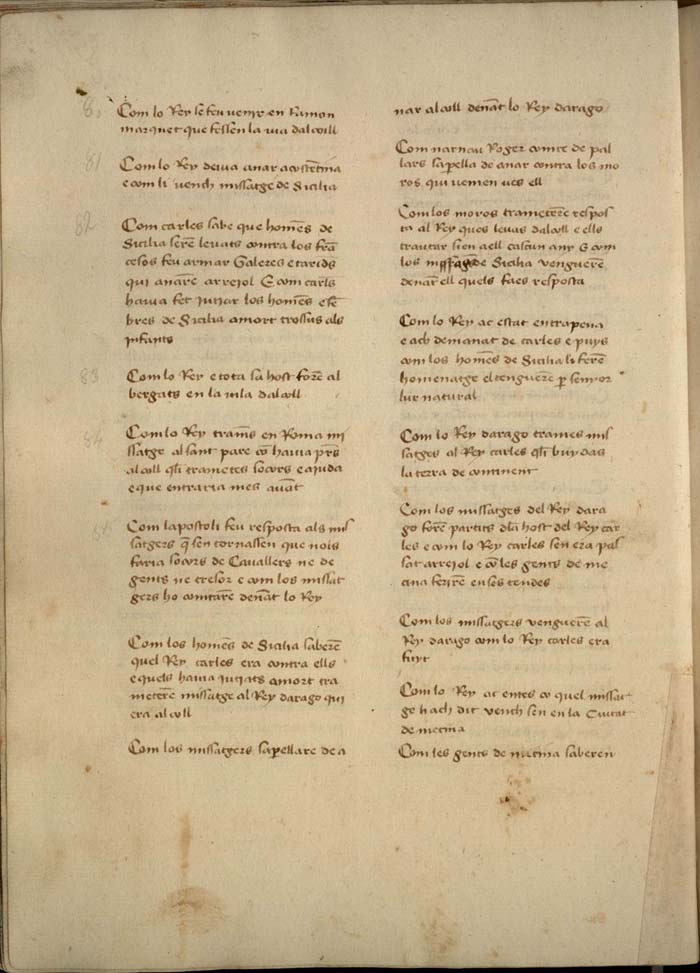 8
Com lo Rey se feu venir en Ramon
marquet que fessen la via dalcoll
81
Com lo Rey devia anar a costentina
e com li vench missatge de Sicilia
82
Com carles sabe que homēs de
Sicilia serē levats contra los frā
cesos feu armar Galeres e tarides
qui anarē a rejol E com carls
havia fet jutjar los homēs e fē
bres de Sicilia amort trossus als
infants
83
Com lo Rey e tota sa host forē al
bergats en la vila dalcoll
84
Com lo Rey tramˢ en Roma mi
ssatge al sant pare cō havia prˢ
alcoll qli trametes socors e ajuda
e que entraria mes avāt
85
Com lapostoli feu resposta als mis
satgers q̄ sen tornassen que nols
faria socors de Cavallers ne de
gents ne tresor e com los missat
gers ho comtarē denāt lo Rey
Com los homēs de Sicilia saberē
quel Rey carles era contra ells
e quels havia jutjats amort tra
meterē missatge al Rey darago qui
era alcoll
Com los missatgers sapellare de a
nar alcoll denāt lo Rey darago
Com narnau Roger comte de pal
lars sapella de anar contra los mo
ros qui venien ves ell
Com los moros trameterē respos
ta al Rey ques levas dalcoll e ells
trautar sien a ell cascun any E com
los de Sicilia venguerē
denāt ell quels faes resposta
Com lo Rey ac estat entrapena
e ach demanat de carles e puys
com los homēs de Sicilia li ferē
homenatge el tenguerē p senyor
lur natural
Com lo Rey darago trames mis
satges al Rey carles qli buydas
la terra de continent
Com los missatges del Rey dara
go forē partits dla host del Rey car
les e com lo Rey carles sen era pas
sat a rejol e cō les gents de me
cina ferirē en ses tendes
Com los missatgers venguerē al
Rey darago com lo Rey carles era
fuyt
Com lo Rey ac entes co quel missat
ge hach dit vench sen en la Ciutat
de mecina
Com les gents de mecina saberen